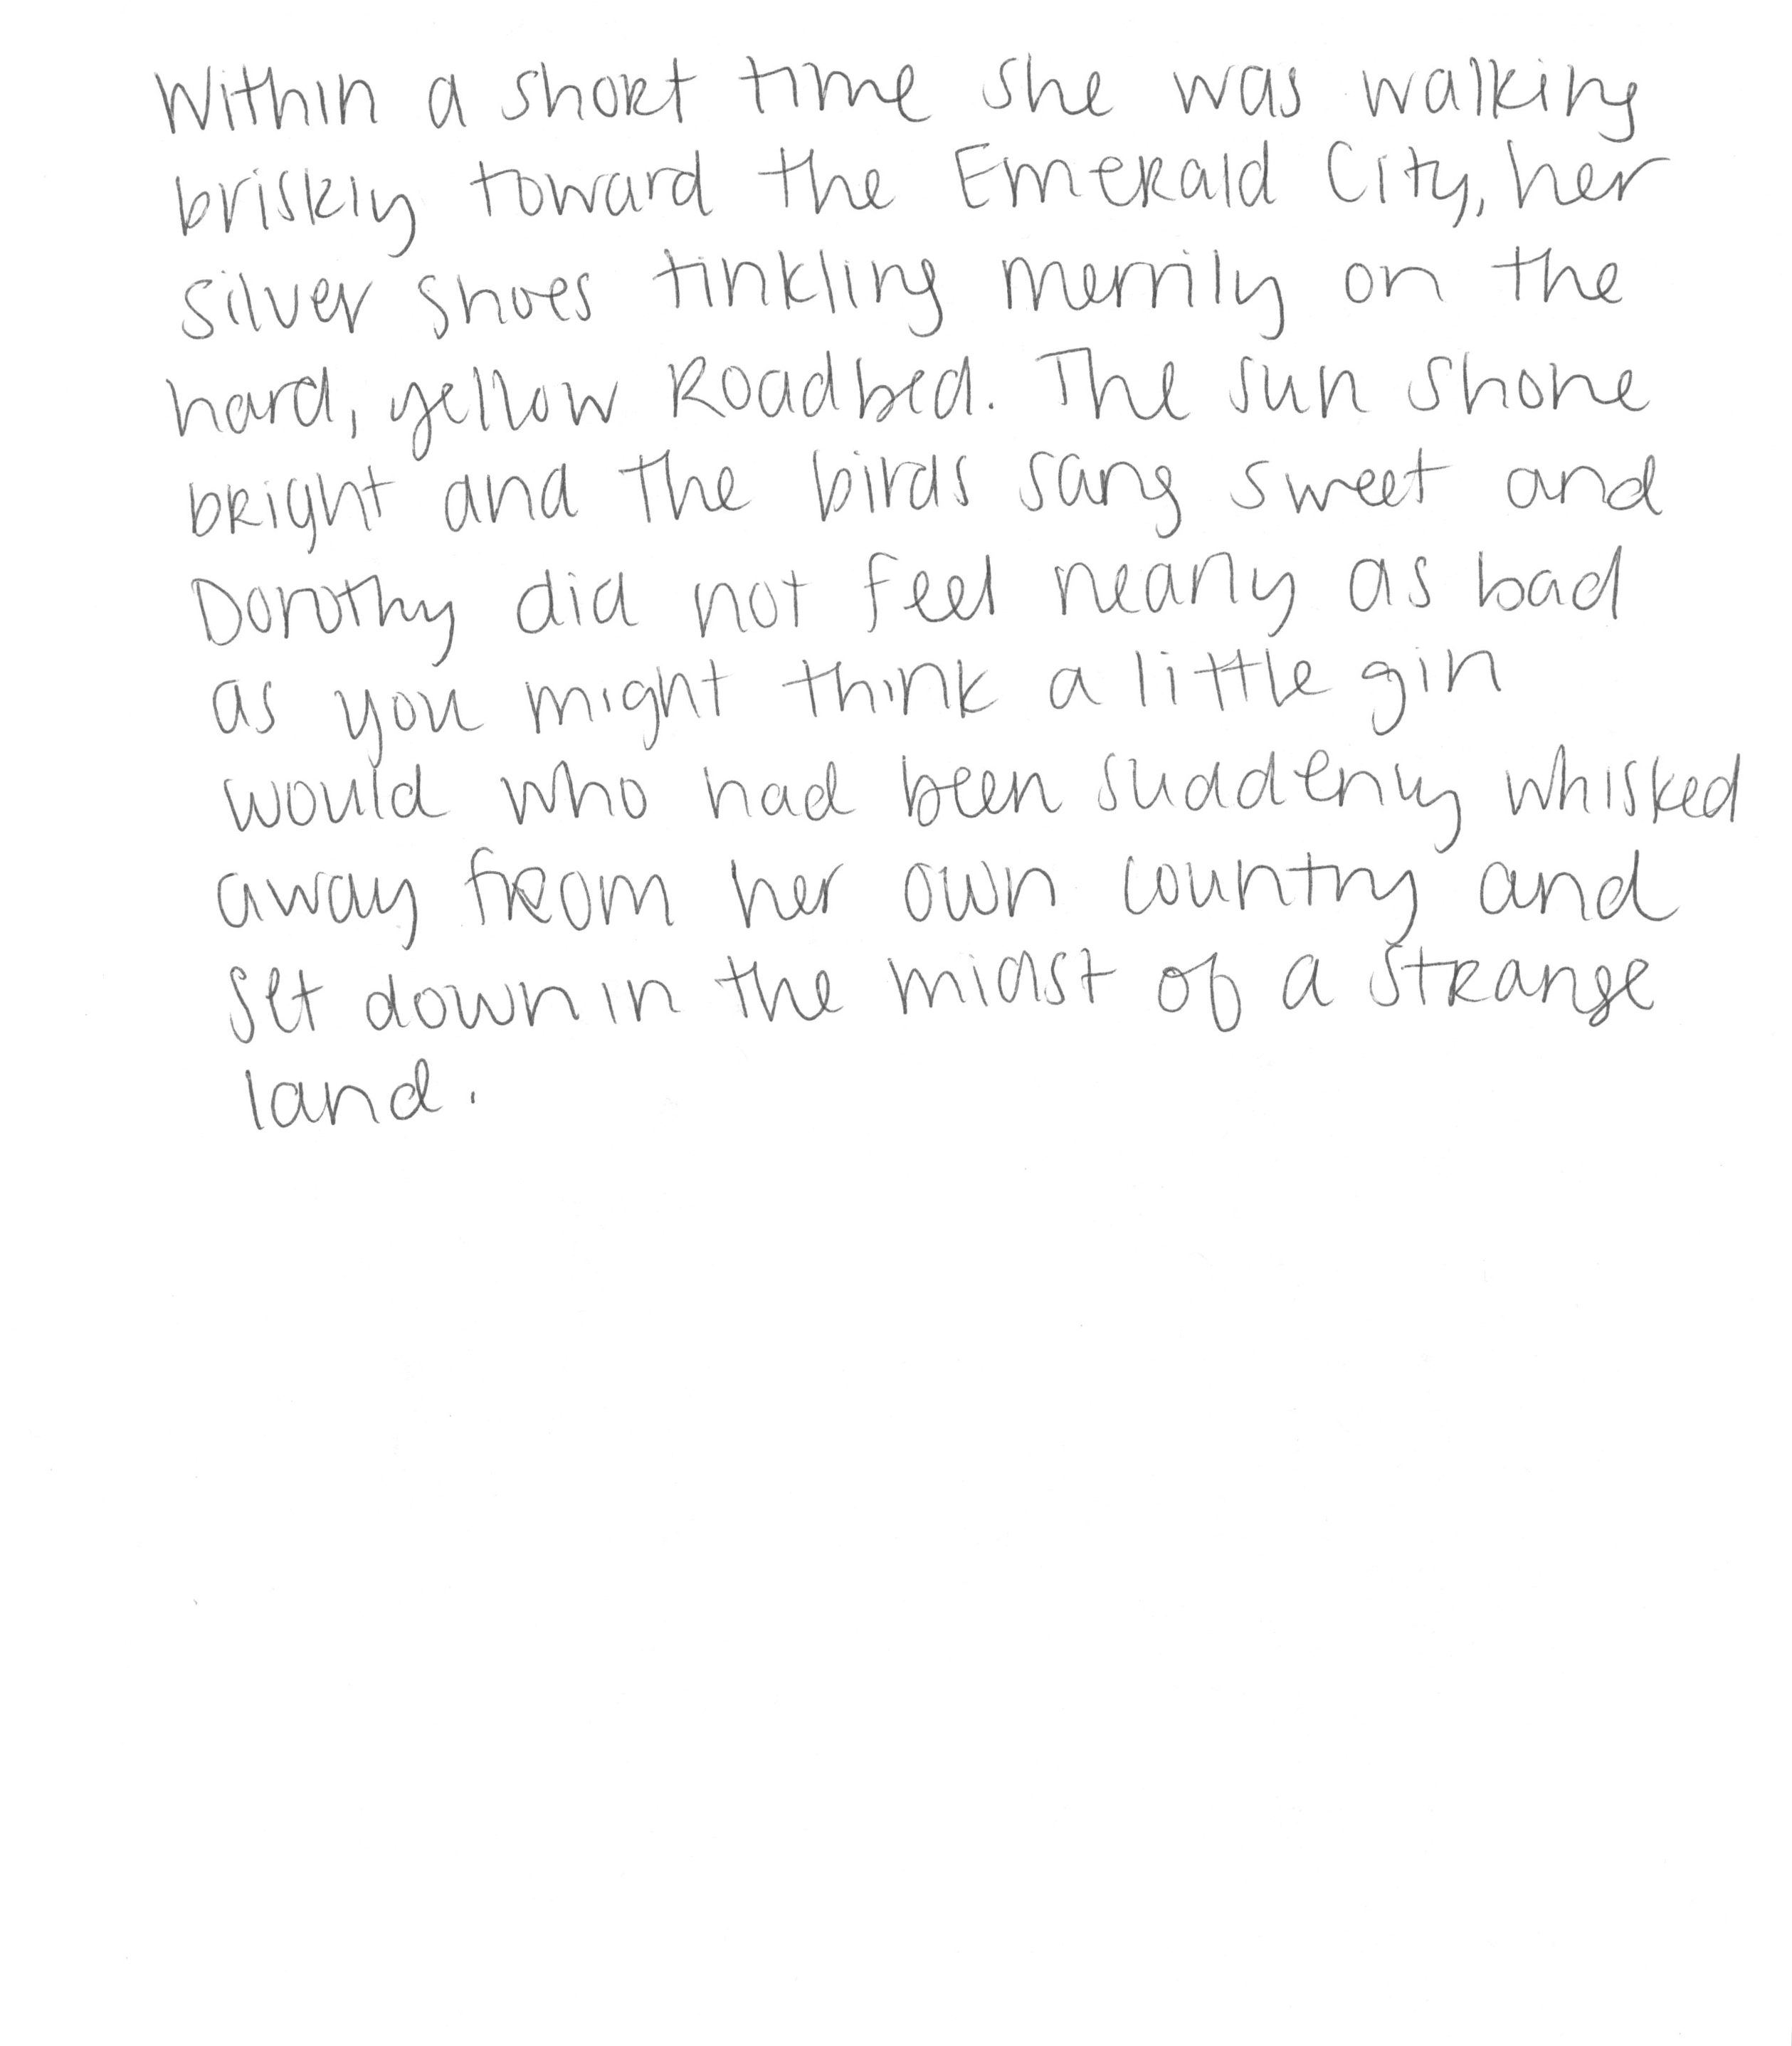 Within a short time she was walking
briskly toward the Emerald City, her
silver shoes tinkling merrily on the
hard, yellow Roadbed. The sun shone
bright and the birds sang sweet and
Dorothy did not feel nearly as bad
as you might think a little girl
would who had been suddenly whisked
away from her own country and
set down in the midst of a strange
land.